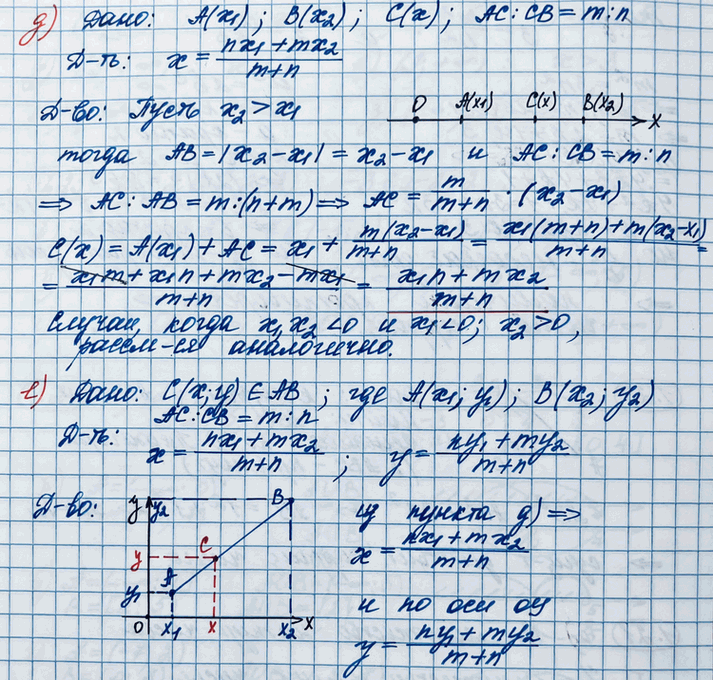 д) Дано: A(x₁); B(x₂); C(x); AC:CB = m:n
Д-ть: x = (nx₁ + mx₂)/(m+n)
Д-во: Пусть x₂ > x₁
O A(x₁) C(x) B(x₂) x
тогда AB = |x₂ - x₁| = x₂ - x₁ и AC:CB = m:n
⇒ AC:AB = m:(n+m) ⇒ AC = m/(m+n) · (x₂ - x₁)
C(x) = A(x₁) + AC = x₁ + m(x₂-x₁)/(m+n) = (x₁(m+n) + m(x₂-x₁))/(m+n) =
= (x₁m + x₁n + mx₂ - mx₁)/(m+n) = (x₁n + mx₂)/(m+n)
Случаи, когда x₁,x₂ <0 и x₁<0; x₂>0,
рассм-ся аналогично.
е) Дано: C(x;y) ∈ AB ; где A(x₁; y₁); B(x₂; y₂)
AC:CB = m:n
Д-ть:
x = (nx₁ + mx₂)/(m+n) ; y = (ny₁ + my₂)/(m+n)
Д-во:
y y₂ B
y C
y₁ A
O x₁ x x₂ x
из пункта д) ⇒
x = (nx₁ + mx₂)/(m+n)
и по оси оу
y = (ny₁ + my₂)/(m+n)